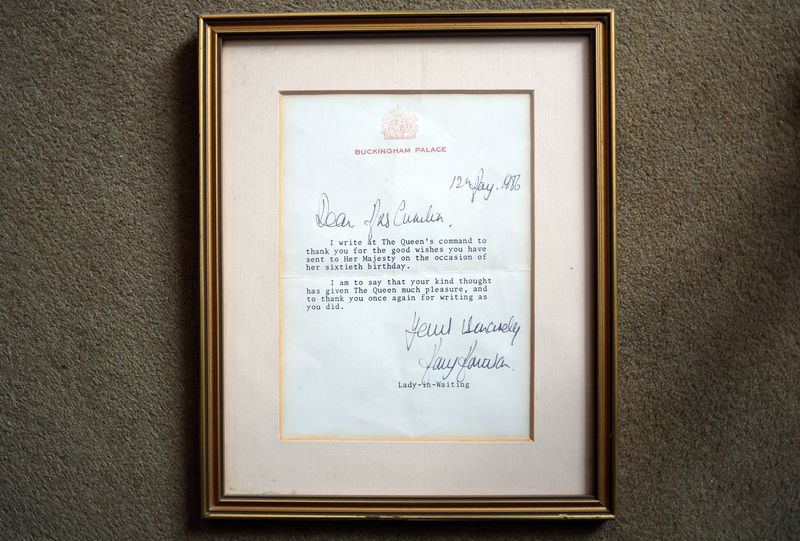 BUCKINGHAM PALACE
12th 1986
Dear Mrs
I write at The Queen's command to
thank you for the good wishes you have
sent to Her Majesty on the occasion of
her sixtieth birthday.
I am to say that your kind thought
has given The Queen much pleasure, and
to thank you once again for writing as
you did.
Yours sincerely
Lady-in-Waiting